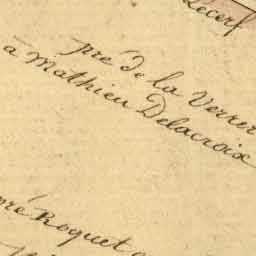 Lecerf
pré de la Verrer
a Mathieu Delacroix
pré Roquet